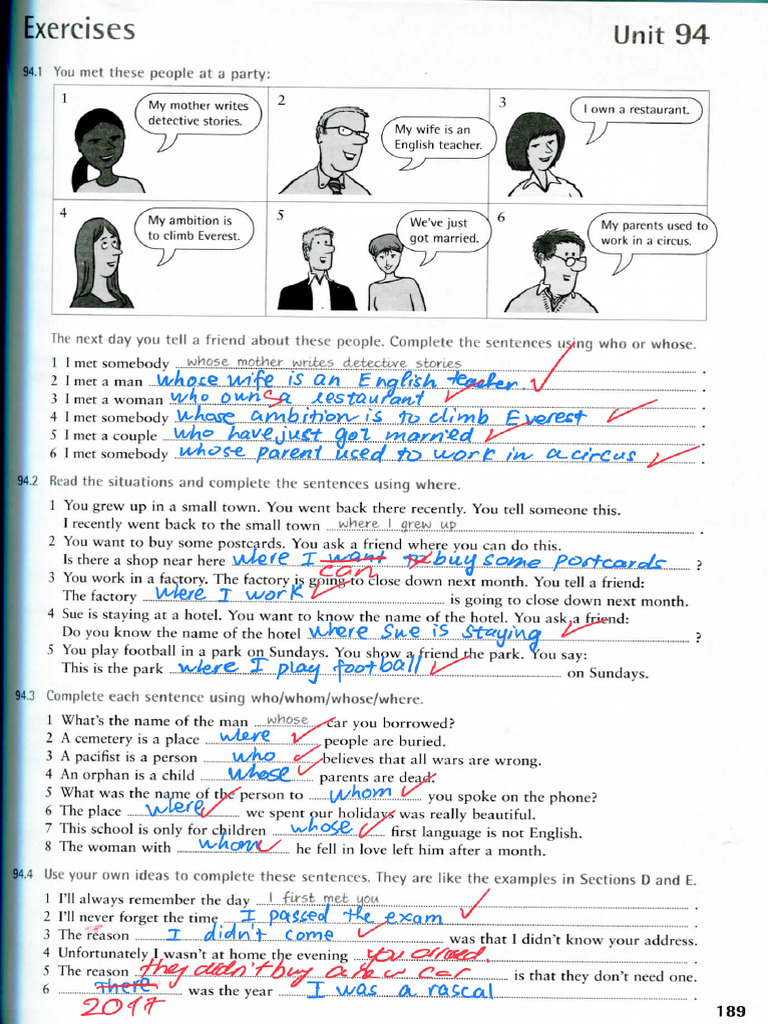 Exercises
Unit 94
94.1 You met these people at a party:
1
My mother writes
detective stories.
2
My wife is an
English teacher.
3
I own a restaurant.
4
My ambition is
to climb Everest.
5
We've just
got married.
6
My parents used to
work in a circus.
The next day you tell a friend about these people. Complete the sentences using who or whose.
1 I met somebody whose mother writes detective stories .
2 I met a man whose wife is an English teacher. .
3 I met a woman who owns a restaurant .
4 I met somebody whose ambition is to climb Everest .
5 I met a couple who have just got married .
6 I met somebody whose parent used to work in a circus .
94.2 Read the situations and complete the sentences using where.
1 You grew up in a small town. You went back there recently. You tell someone this.
I recently went back to the small town where I grew up .
2 You want to buy some postcards. You ask a friend where you can do this.
Is there a shop near here where I want to buy some portcards ?
can
3 You work in a factory. The factory is going to close down next month. You tell a friend:
The factory where I work is going to close down next month.
4 Sue is staying at a hotel. You want to know the name of the hotel. You ask a friend:
Do you know the name of the hotel where Sue is staying ?
5 You play football in a park on Sundays. You show a friend the park. You say:
This is the park where I play football on Sundays.
94.3 Complete each sentence using who/whom/whose/where.
1 What's the name of the man whose car you borrowed?
2 A cemetery is a place where people are buried.
3 A pacifist is a person who believes that all wars are wrong.
4 An orphan is a child whose parents are dead.
5 What was the name of the person to whom you spoke on the phone?
6 The place where we spent our holidays was really beautiful.
7 This school is only for children whose first language is not English.
8 The woman with whom he fell in love left him after a month.
94.4 Use your own ideas to complete these sentences. They are like the examples in Sections D and E.
1 I'll always remember the day I first met you .
2 I'll never forget the time I passed the exam .
3 The reason I didn't come was that I didn't know your address.
4 Unfortunately I wasn't at home the evening you arrived. .
5 The reason they didn't buy a new car is that they don't need one.
6 There was the year I was a rascal .
2017
189